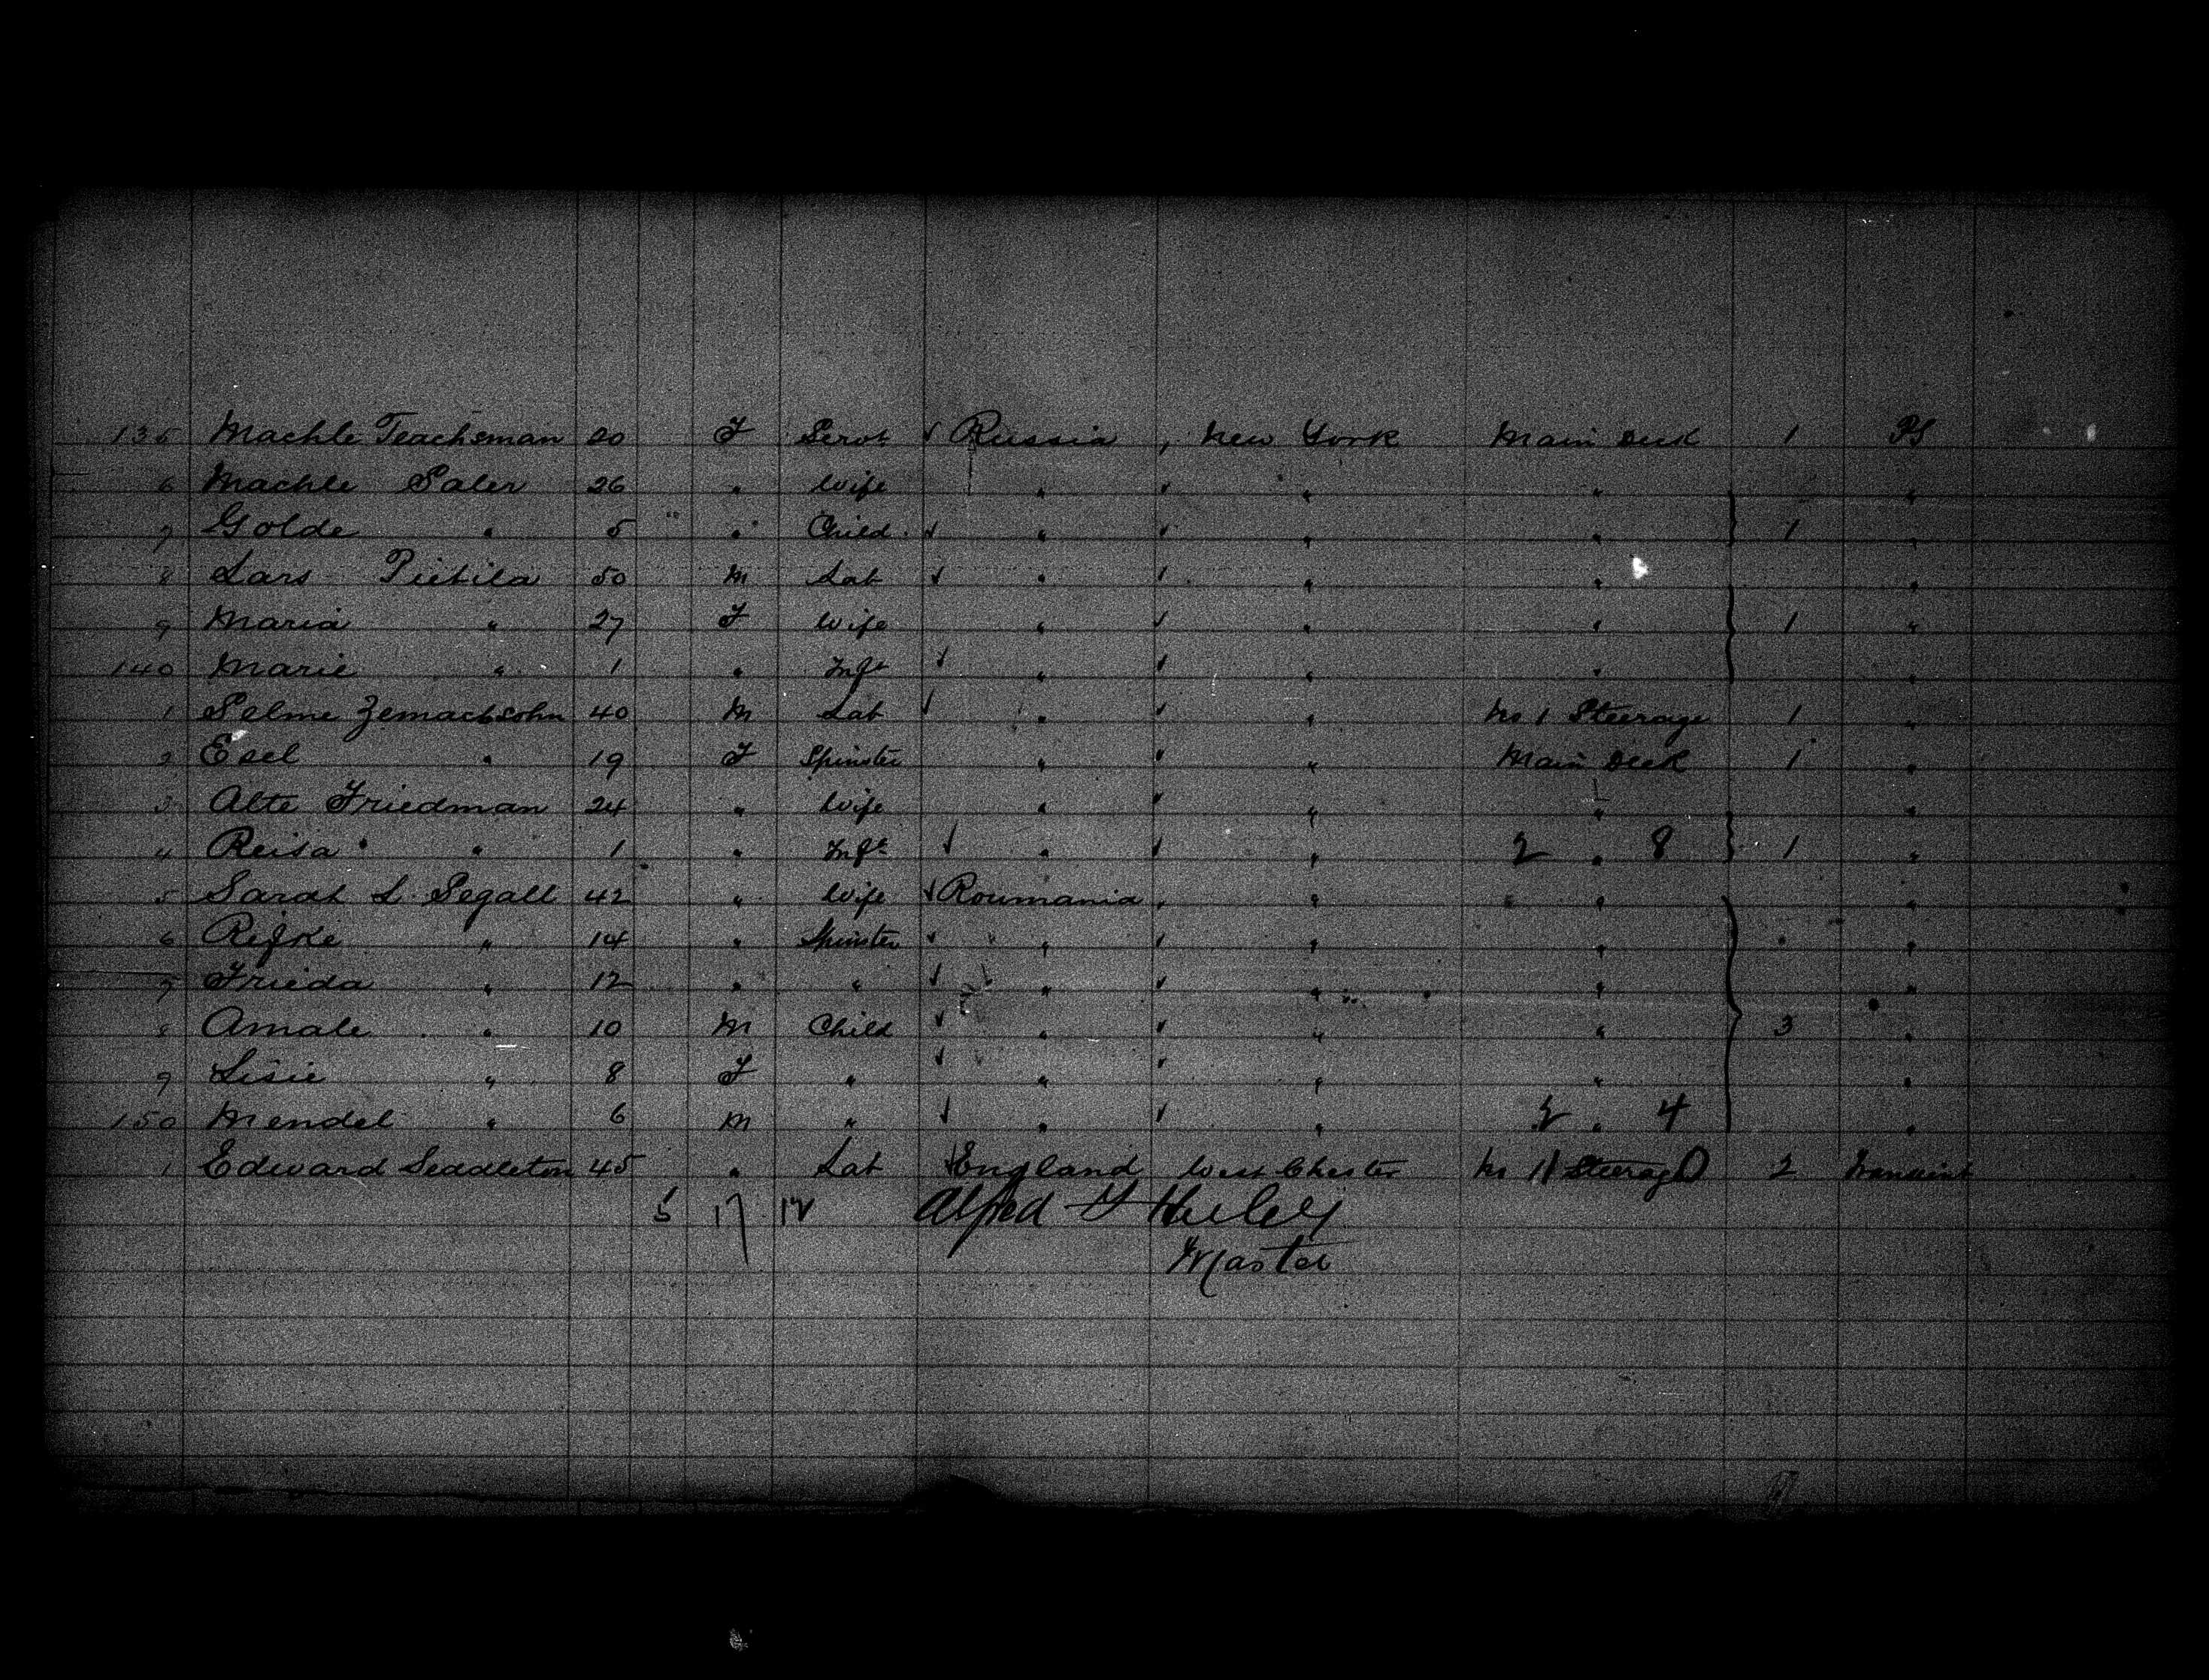 135 Machle Teachsman 20 F Servt ✓ Russia , New York Main Deck 1 PS
6 Machle Saler 26 " Wife " ✓ " " "
7 Golde " 5 " Child ✓ " ✓ " " } 1 "
8 Lars Pietila 50 M Lab ✓ " ✓ " " "
9 Maria " 27 F Wife " ✓ " " } 1 "
140 Marie " 1 " Inft ✓ " ✓ " " "
1 Selme Zemachsohn 40 M Lab ✓ " ✓ " No 1 Steerage 1 "
2 Esel " 19 F Spinster " ✓ " Main Deck 1 "
3 Alte Friedman 24 " Wife " ✓ " " "
4 Reisa " 1 " Inft ✓ " ✓ " 2 " 8 } 1 "
5 Sarah L. Segall 42 " Wife ✓ Roumania , " " "
6 Rifke " 14 " Spinster ✓ " ✓ " " "
7 Frieda " 12 " " ✓ " ✓ " " "
8 Amale " 10 M Child ✓ " ✓ " " } 3 "
9 Lisie " 8 F " ✓ " ✓ " " "
150 Mendel " 6 M " ✓ " ✓ " 2 " 4 "
1 Edward Seddleton 45 " Lab England West Chester No 1 Steerage 2 Transient
5 17 12 Alfred
Master